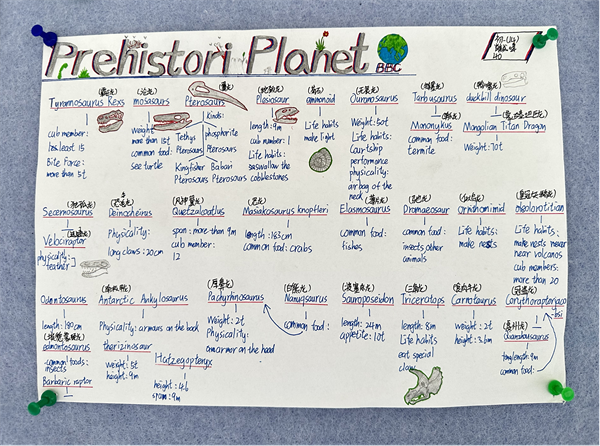 Prehistori Planet
BBC
40
Tyrannosaurus Rexs
cub member:
15
Bite Force:
more than 5t
(沧龙)
mosasaurs
Weight:
more than 15t
common food:
see turtle
(翼龙)
Pterosaurs
Kinds:
phosphorite
Tethys
Pterosaurs Pterosours
Kingfisher Babari
Pterosours Pterosours
(蛇颈龙)
Plesiosaur
length: 9m
cub member: 1
Life habits:
swallow the
cobblestones
ammonoid
Life habits
make light
Weight: 50t
Life habits:
Courtship
performance
physicality:
air bag of the
neck
Tarbusaurus
Mononykus
common food:
termite
(鸭嘴龙)
duckbill dinosaur
Mongolian Titan Dragon
Weight: 70t
Secernosaurus
Velociraptor
physicality:
feather
(恐手龙)
Deinocheirus
Physicality:
long claws: 20cm
(风神翼龙)
Quetzalcoatlus
span: more than 9m
cub member:
12
Masiakasaurus knopfleri
length: 183cm
common food: crabs
Elasmosaurus
common food:
fishes
(驰龙)
Dromaeosaur
common food:
insects other
animals
Ornithomimid
Life habits:
make nests
olorotitian
Life habits:
make nests near
near volcanos
cub members:
more than 20
length: 180cm
edmontosaurus
common foods:
insects
Barbaric raptor
Antarctic Ankylosaurus
Physicality: armours on the back
therizinosaur
weight: 5t
height: 9m
Hatzegopteryx
height: 4.6
span: 9m
(厚鼻龙)
Pachyrhinosaurus
Weight: 2t
Physicality:
an armor on the head
(白熊龙)
Nanuqsaurus
common food:
(波塞东龙)
Sauroposeidon
length: 24m
appetite: 10t
(三角龙)
Triceratops
length: 8m
Life habits
eat special
clays
(食肉牛龙)
Carnotaurus
weight: 2t
height: 3.6m
(冠龙)
Corythoraptor jaco
-bsi
length: 9m
common food: